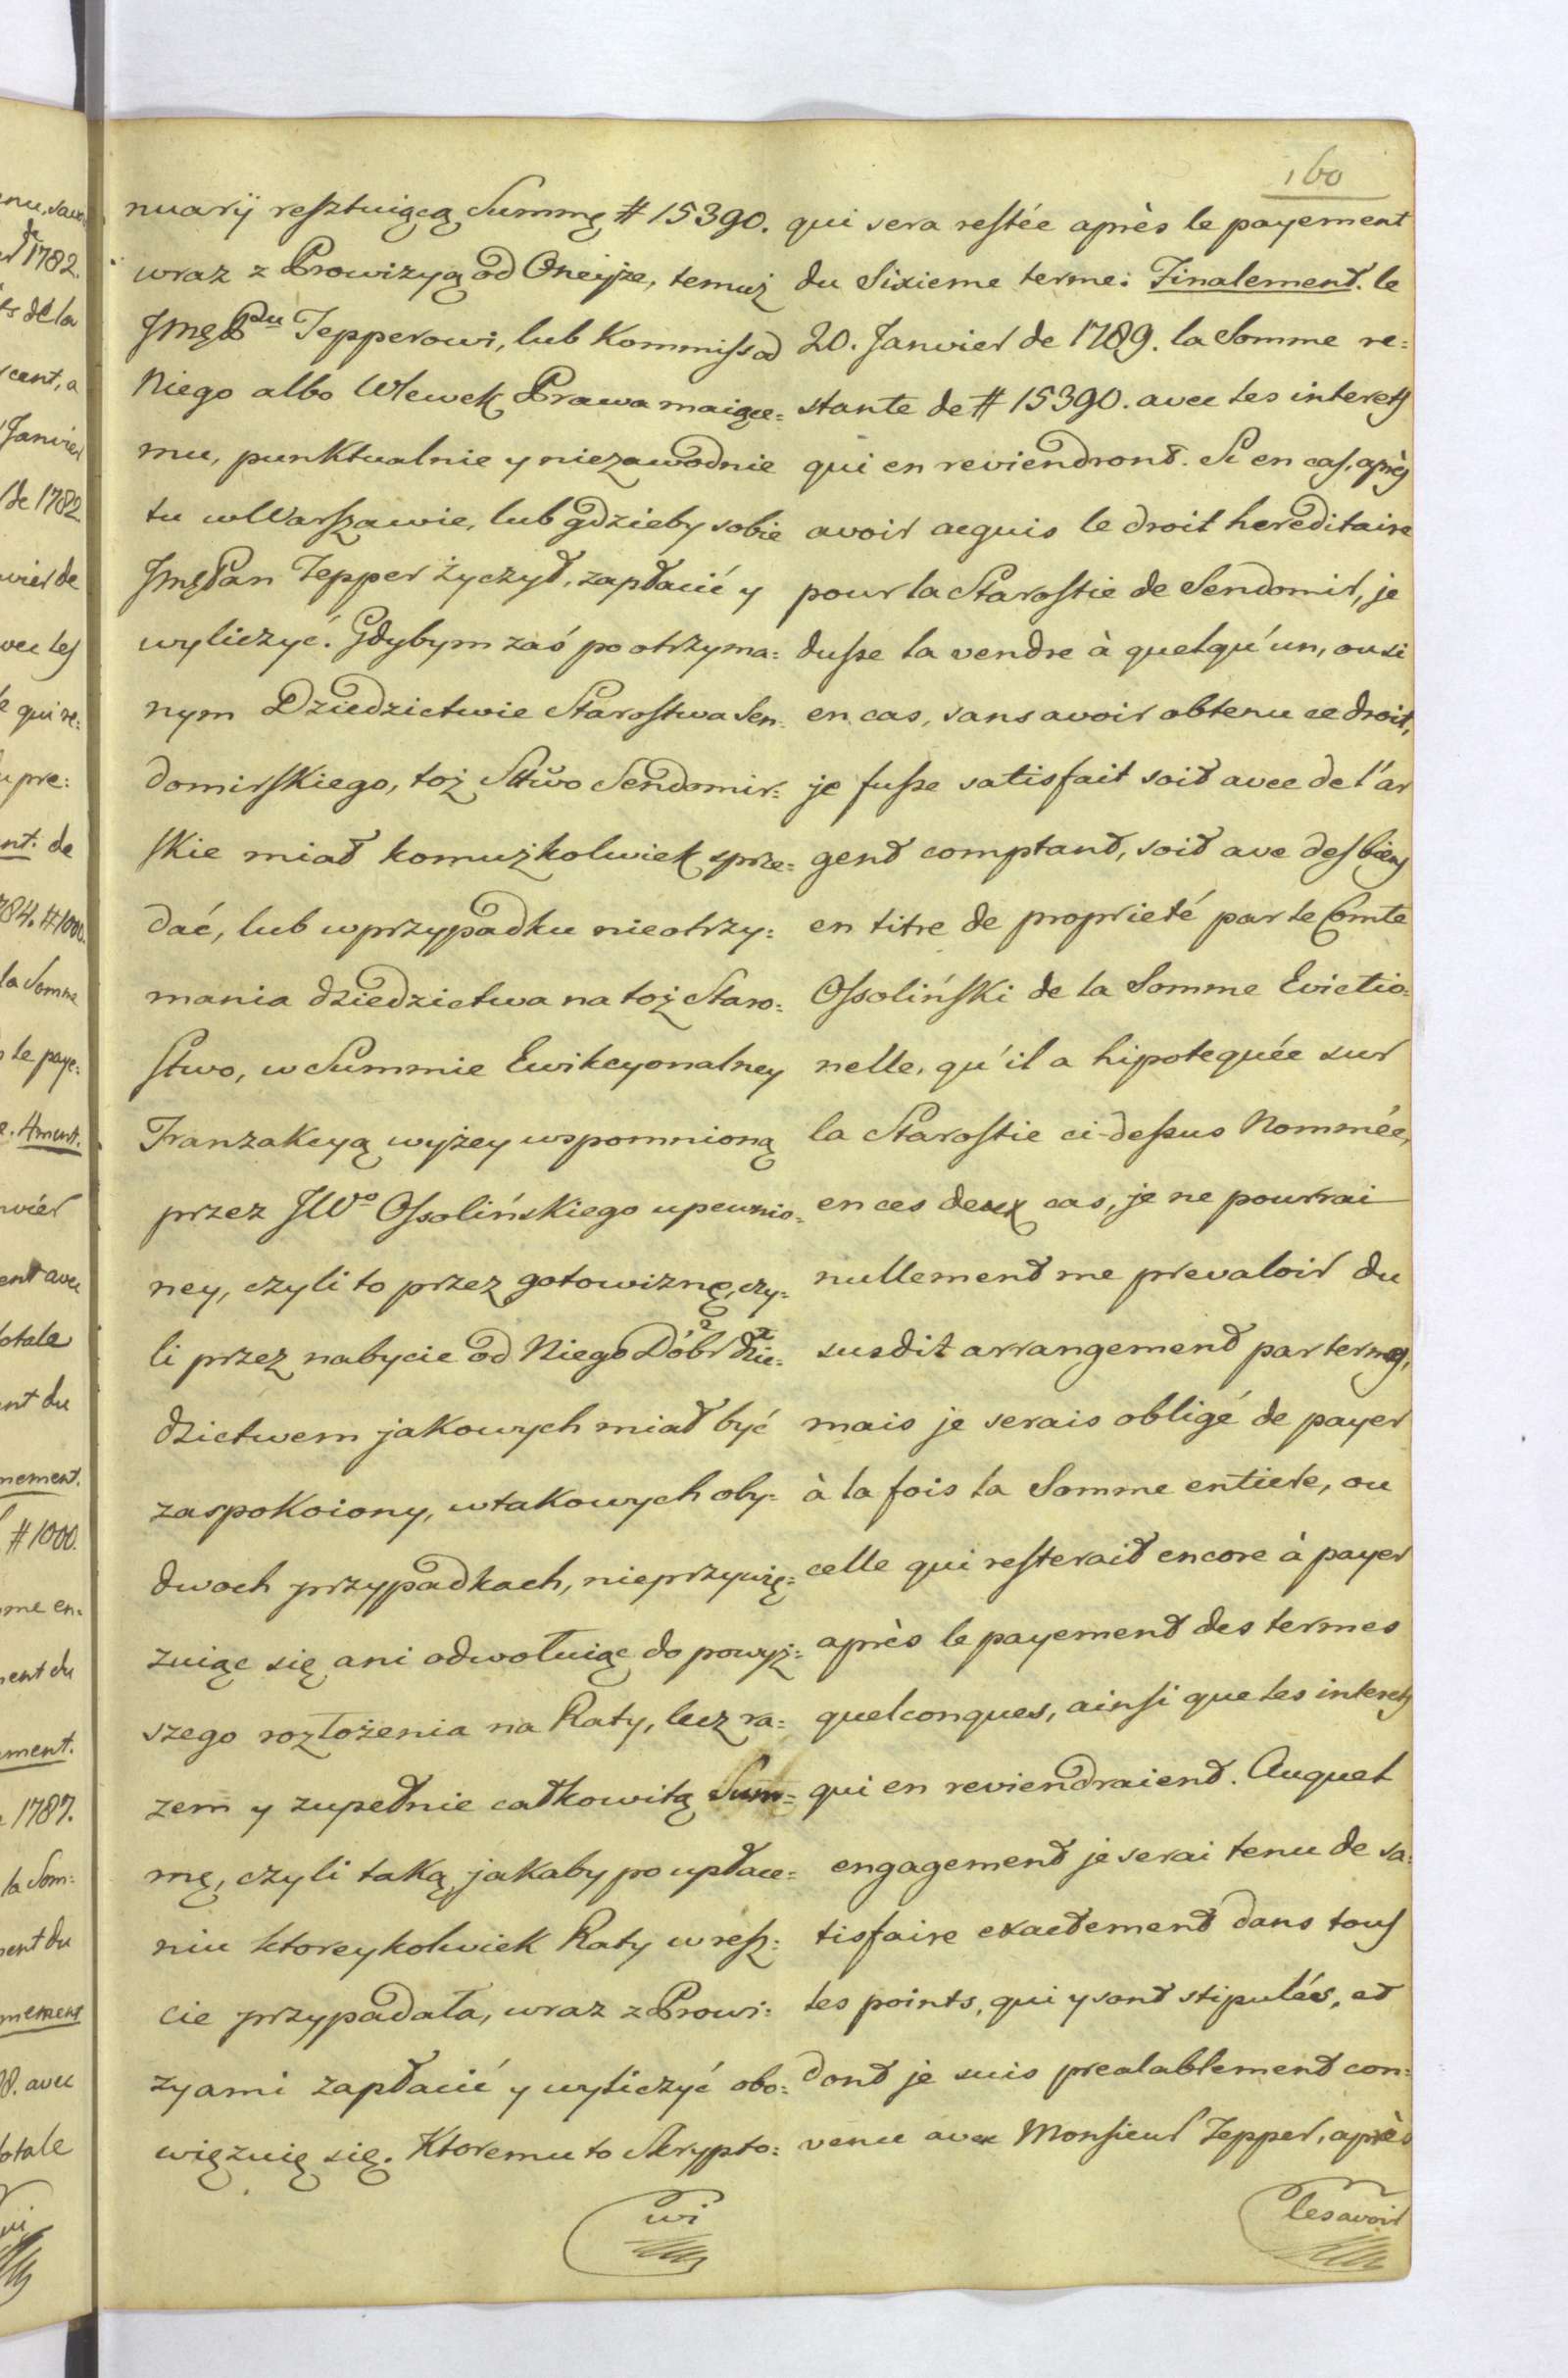 160
nuarÿ resztuiącą Summę # 15390.
wraz z Prowizyą od Oneyże, temuż
JmęPdu Tepperowi, lub Kommiss od
Niego albo Wlewek Prawa maiące=
mu, punktualnie y niezawodnie
tu w Warszawie, lub gdzieby sobie
JmęPan Tepper życzył, zapłacić y
wyliczyć. Gdybym zaś po otrzyma=
nym Dziedzictwie Starostwa Sen=
domirskiego, toż Sttwo Sendomir=
skie miał komużkolwiek sprze=
dać, lub w przypadku nieotrzy=
mania dziedzictwa na toż Staro=
stwo, w Summie Ewikcyonalney
Tranzakcyą wyżey wspomnioną
przez JWo Ossolińskiego upewnio=
ney, czyli to przez gotowiznę, czy=
li przez nabycie od Niego Dóbr dzie=
dzictwem jakowych miał być
zaspokoiony, w takowych oby=
dwoch przypadkach, nieprzywię=
zuiąc się ani odwołuiąc do powyż=
szego rozłożenia na Raty, lecz ra=
zem y zupełnie całkowitą Sum=
mę, czyli taką, jakaby po upłace=
niu ktoreykolwiek Raty w resz=
cie przypadała, wraz z Prowi=
zyami zapłacić y wyliczyć obo=
więzuię się. Ktoremu to Skrypto=
wi
qui sera restée après le payement
du Sixieme terme: Finalement. le
20. Janvier de 1789. la Somme re=
stante de # 15390. avec les interets
qui en reviendront. Si en cas, après
avoir acquis le droit hereditaire
pour la Starostie de Sendomir, je
dusse la vendre à quelqu'un, ou si
en cas, sans avoir obtenu ce droit,
je fusse satisfait soit avec de l'ar
gent comptant, soit avec des biens
en titre de proprieté par le Comte
Ossoliński de la Somme Evictio=
nelle, qu'il a hipotequée sur
la Starostie ci-dessus Nommée,
en ces deux cas, je ne pourrai
nullement me prevaloir du
susdit arrangement par termes,
mais je serais obligé de payer
à la fois la Somme entiere, ou
celle qui resterait encore à payer
après le payement des termes
quelconques, ainsi que les interets
qui en reviendraient. Auquel
engagement je serai tenu de sa=
tisfaire exactement dans tous
les points, qui y sont stipulés, et
dont je suis prealablement con=
venu avec Monsieur Tepper, après
les avoir